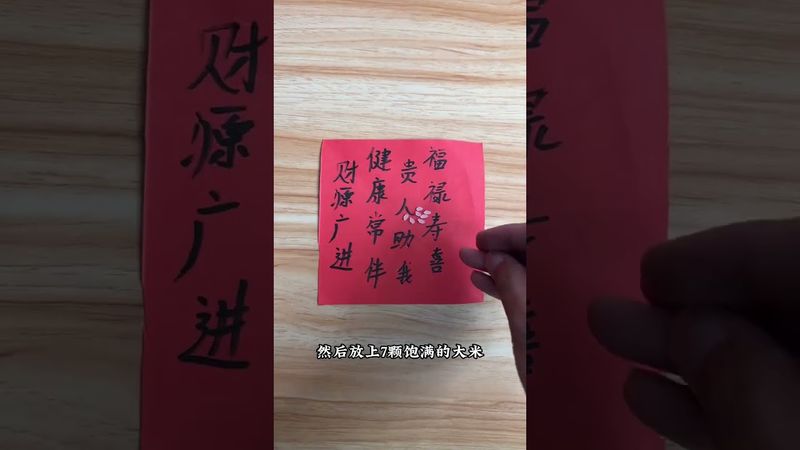 福禄寿喜
贵人助我
健康常伴
财源广进
然后放上7颗饱满的大米